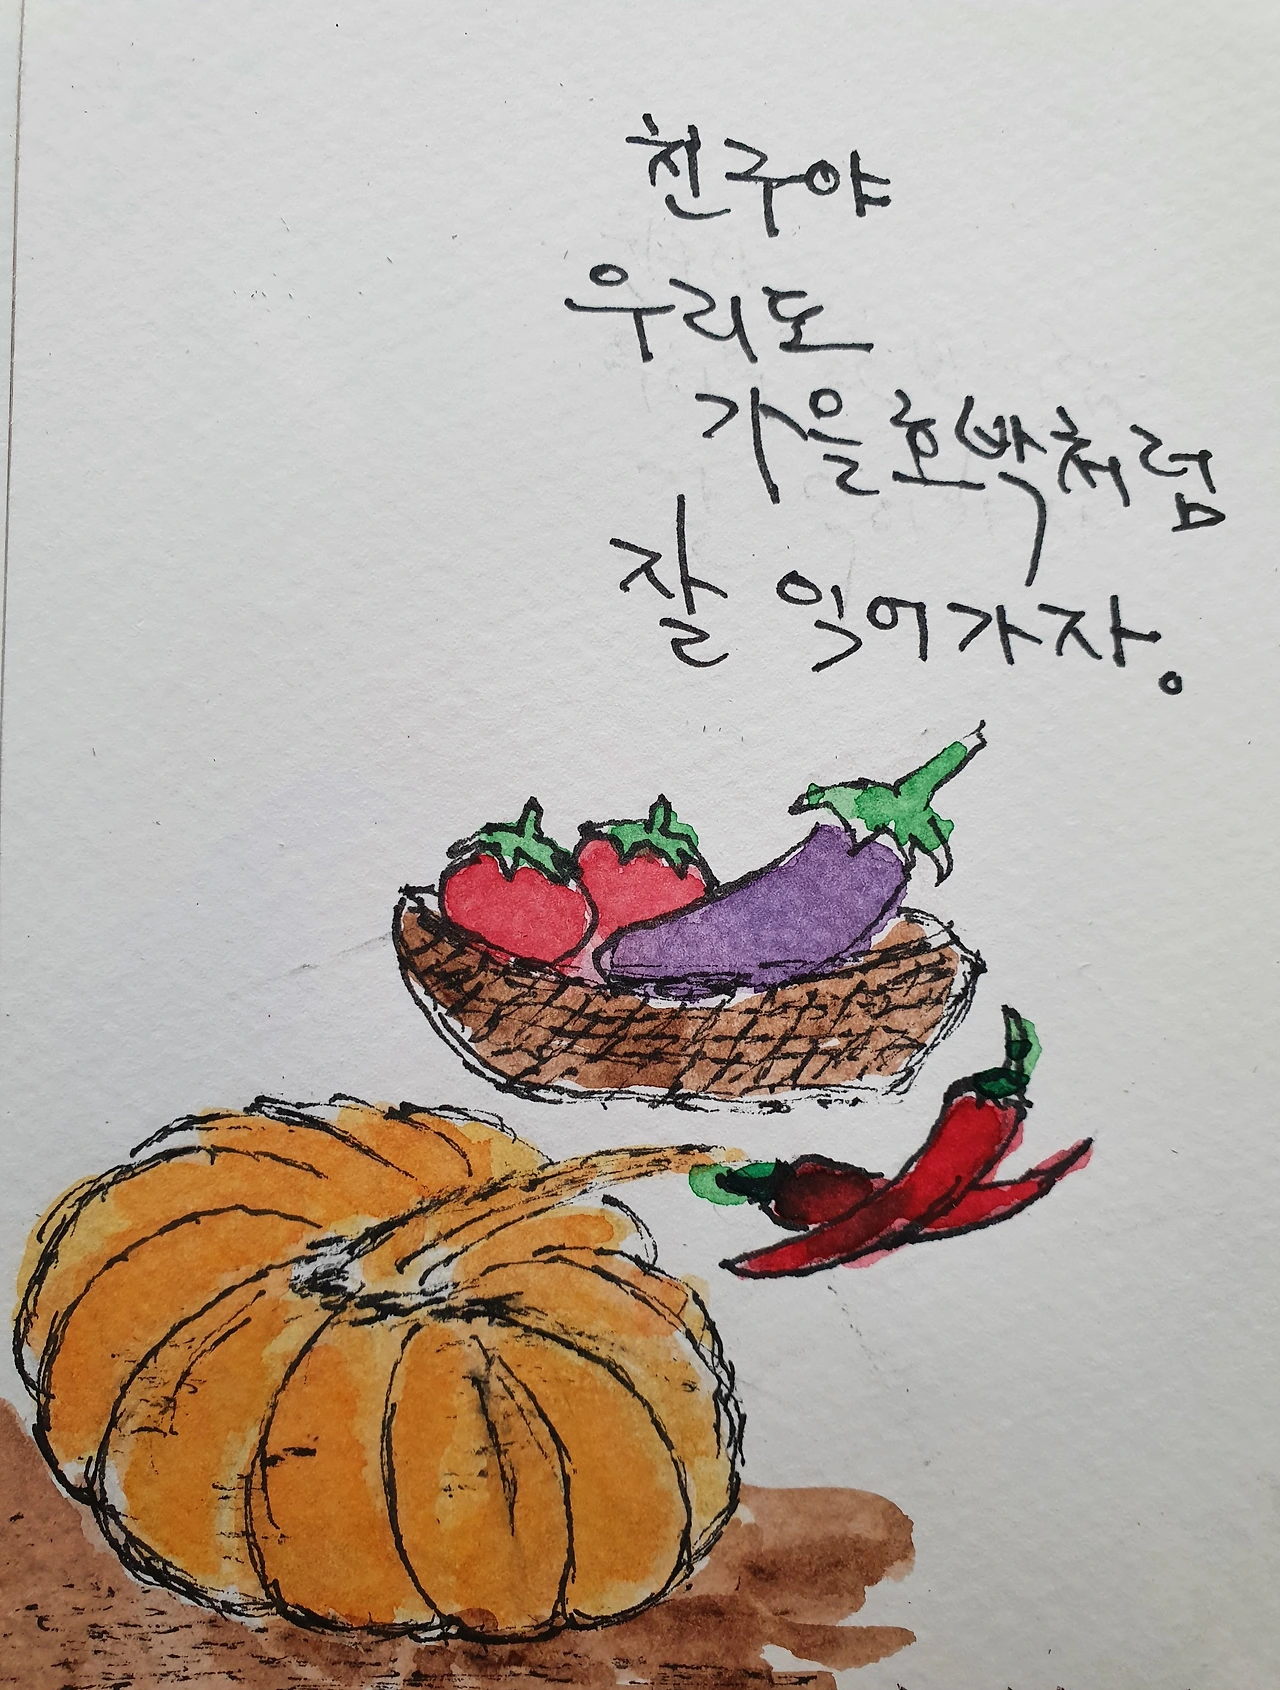 친구야
우리도
가을호박처럼
잘 익어가자.